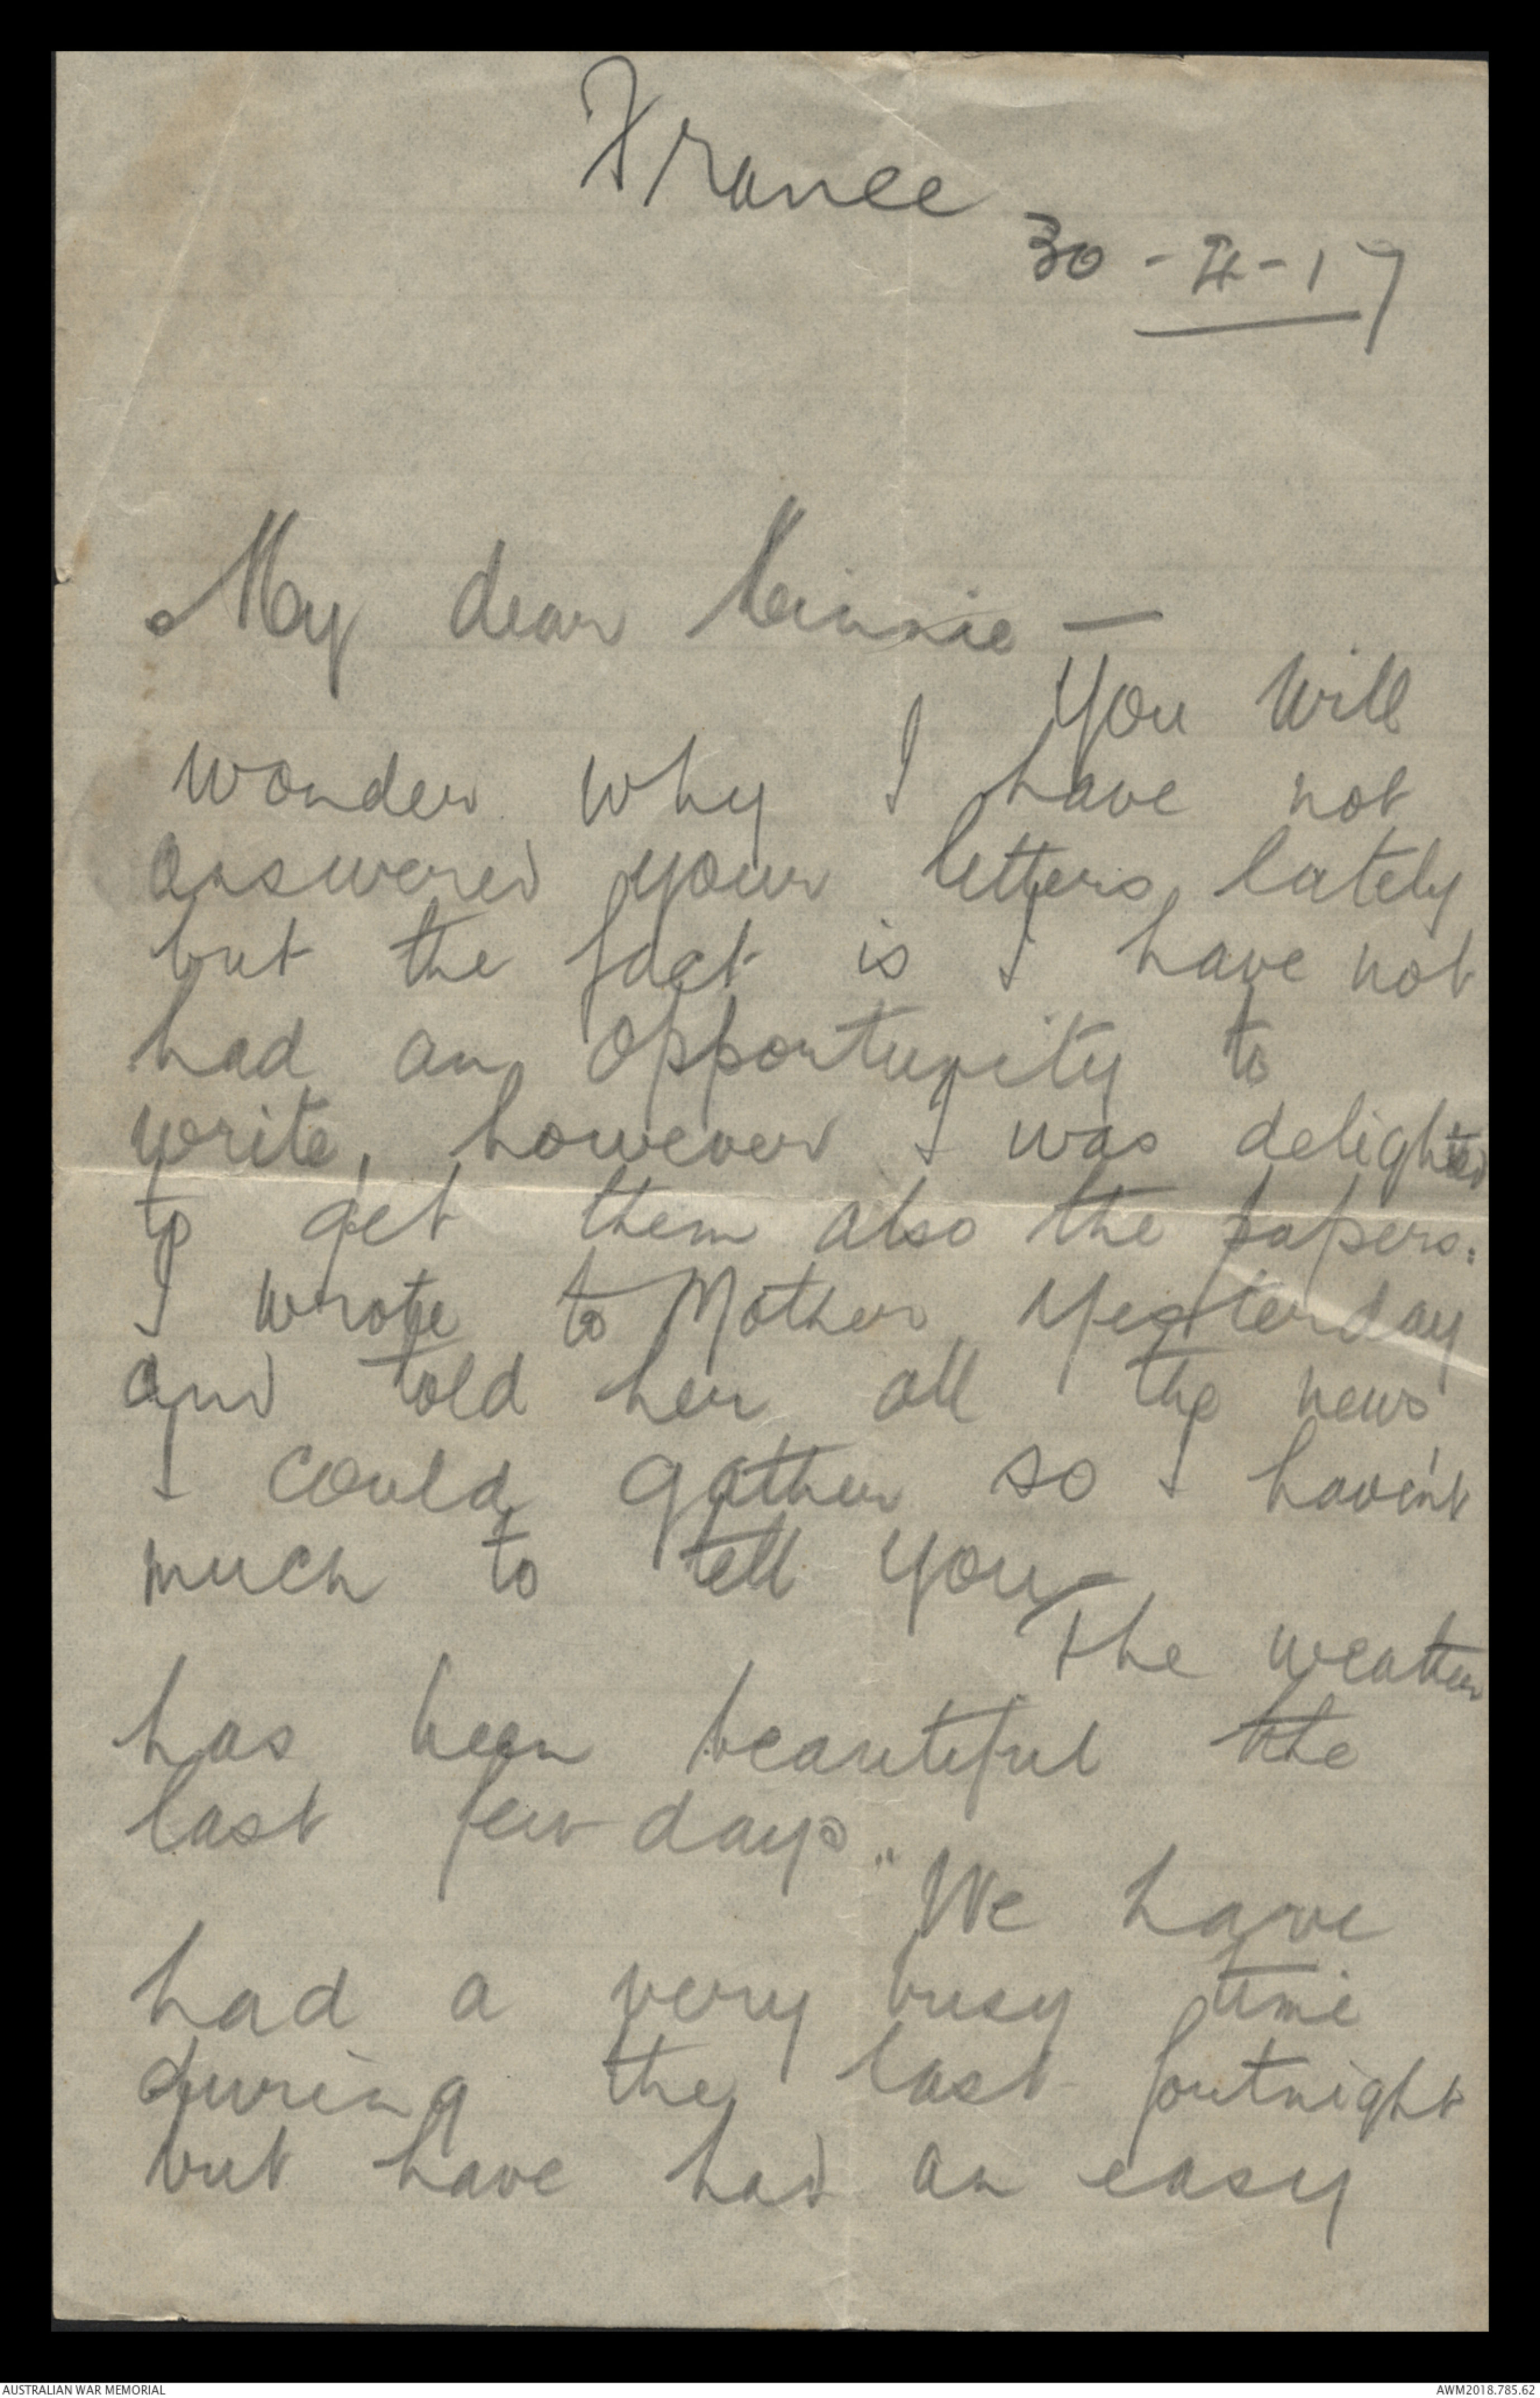 France
30 - 4 - 17
My dear Minnie —
You will
wonder why I have not
answered your letters lately
but the fact is I have not
had an opportunity to
write, however I was delighted
to get them also the papers.
I wrote to Mother yesterday
and told her all the news
I could gather so I haven't
much to tell you —
The weather
has been beautiful the
last few days.
We have
had a very busy time
during the last fortnight
but have had an easy
AUSTRALIAN WAR MEMORIAL
AWM2018.785.62